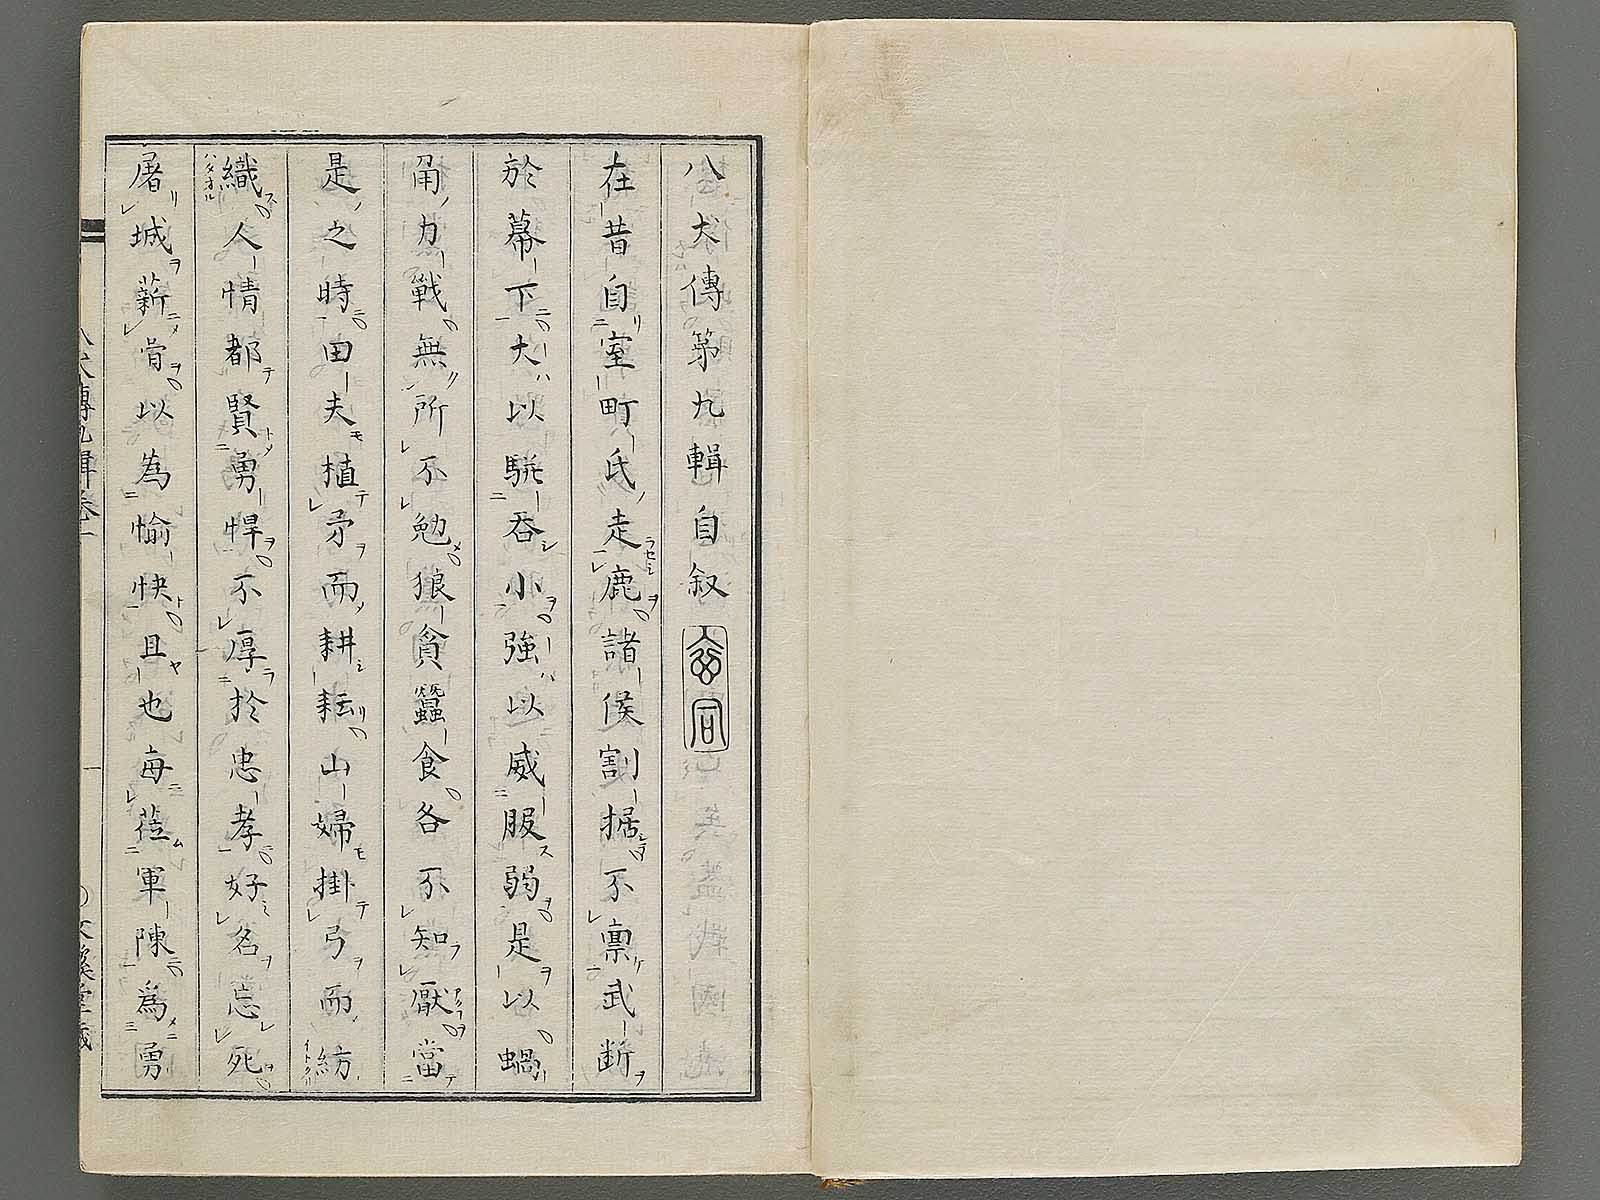 八犬傳第九輯自叙
在昔自室町氏走鹿諸侯割据不禀武断
於幕下大以駢呑小強以威服弱是以蝸
角力戰無所不勉狼貪蠶食各不知厭當
是之時田夫植矛而耕耘山婦掛弓而紡
織人情都賢勇悍不厚於忠孝好名忘死
屠城薪骨以為愉快且也毎莅軍陳爲勇
八犬傳九輯巻一
一